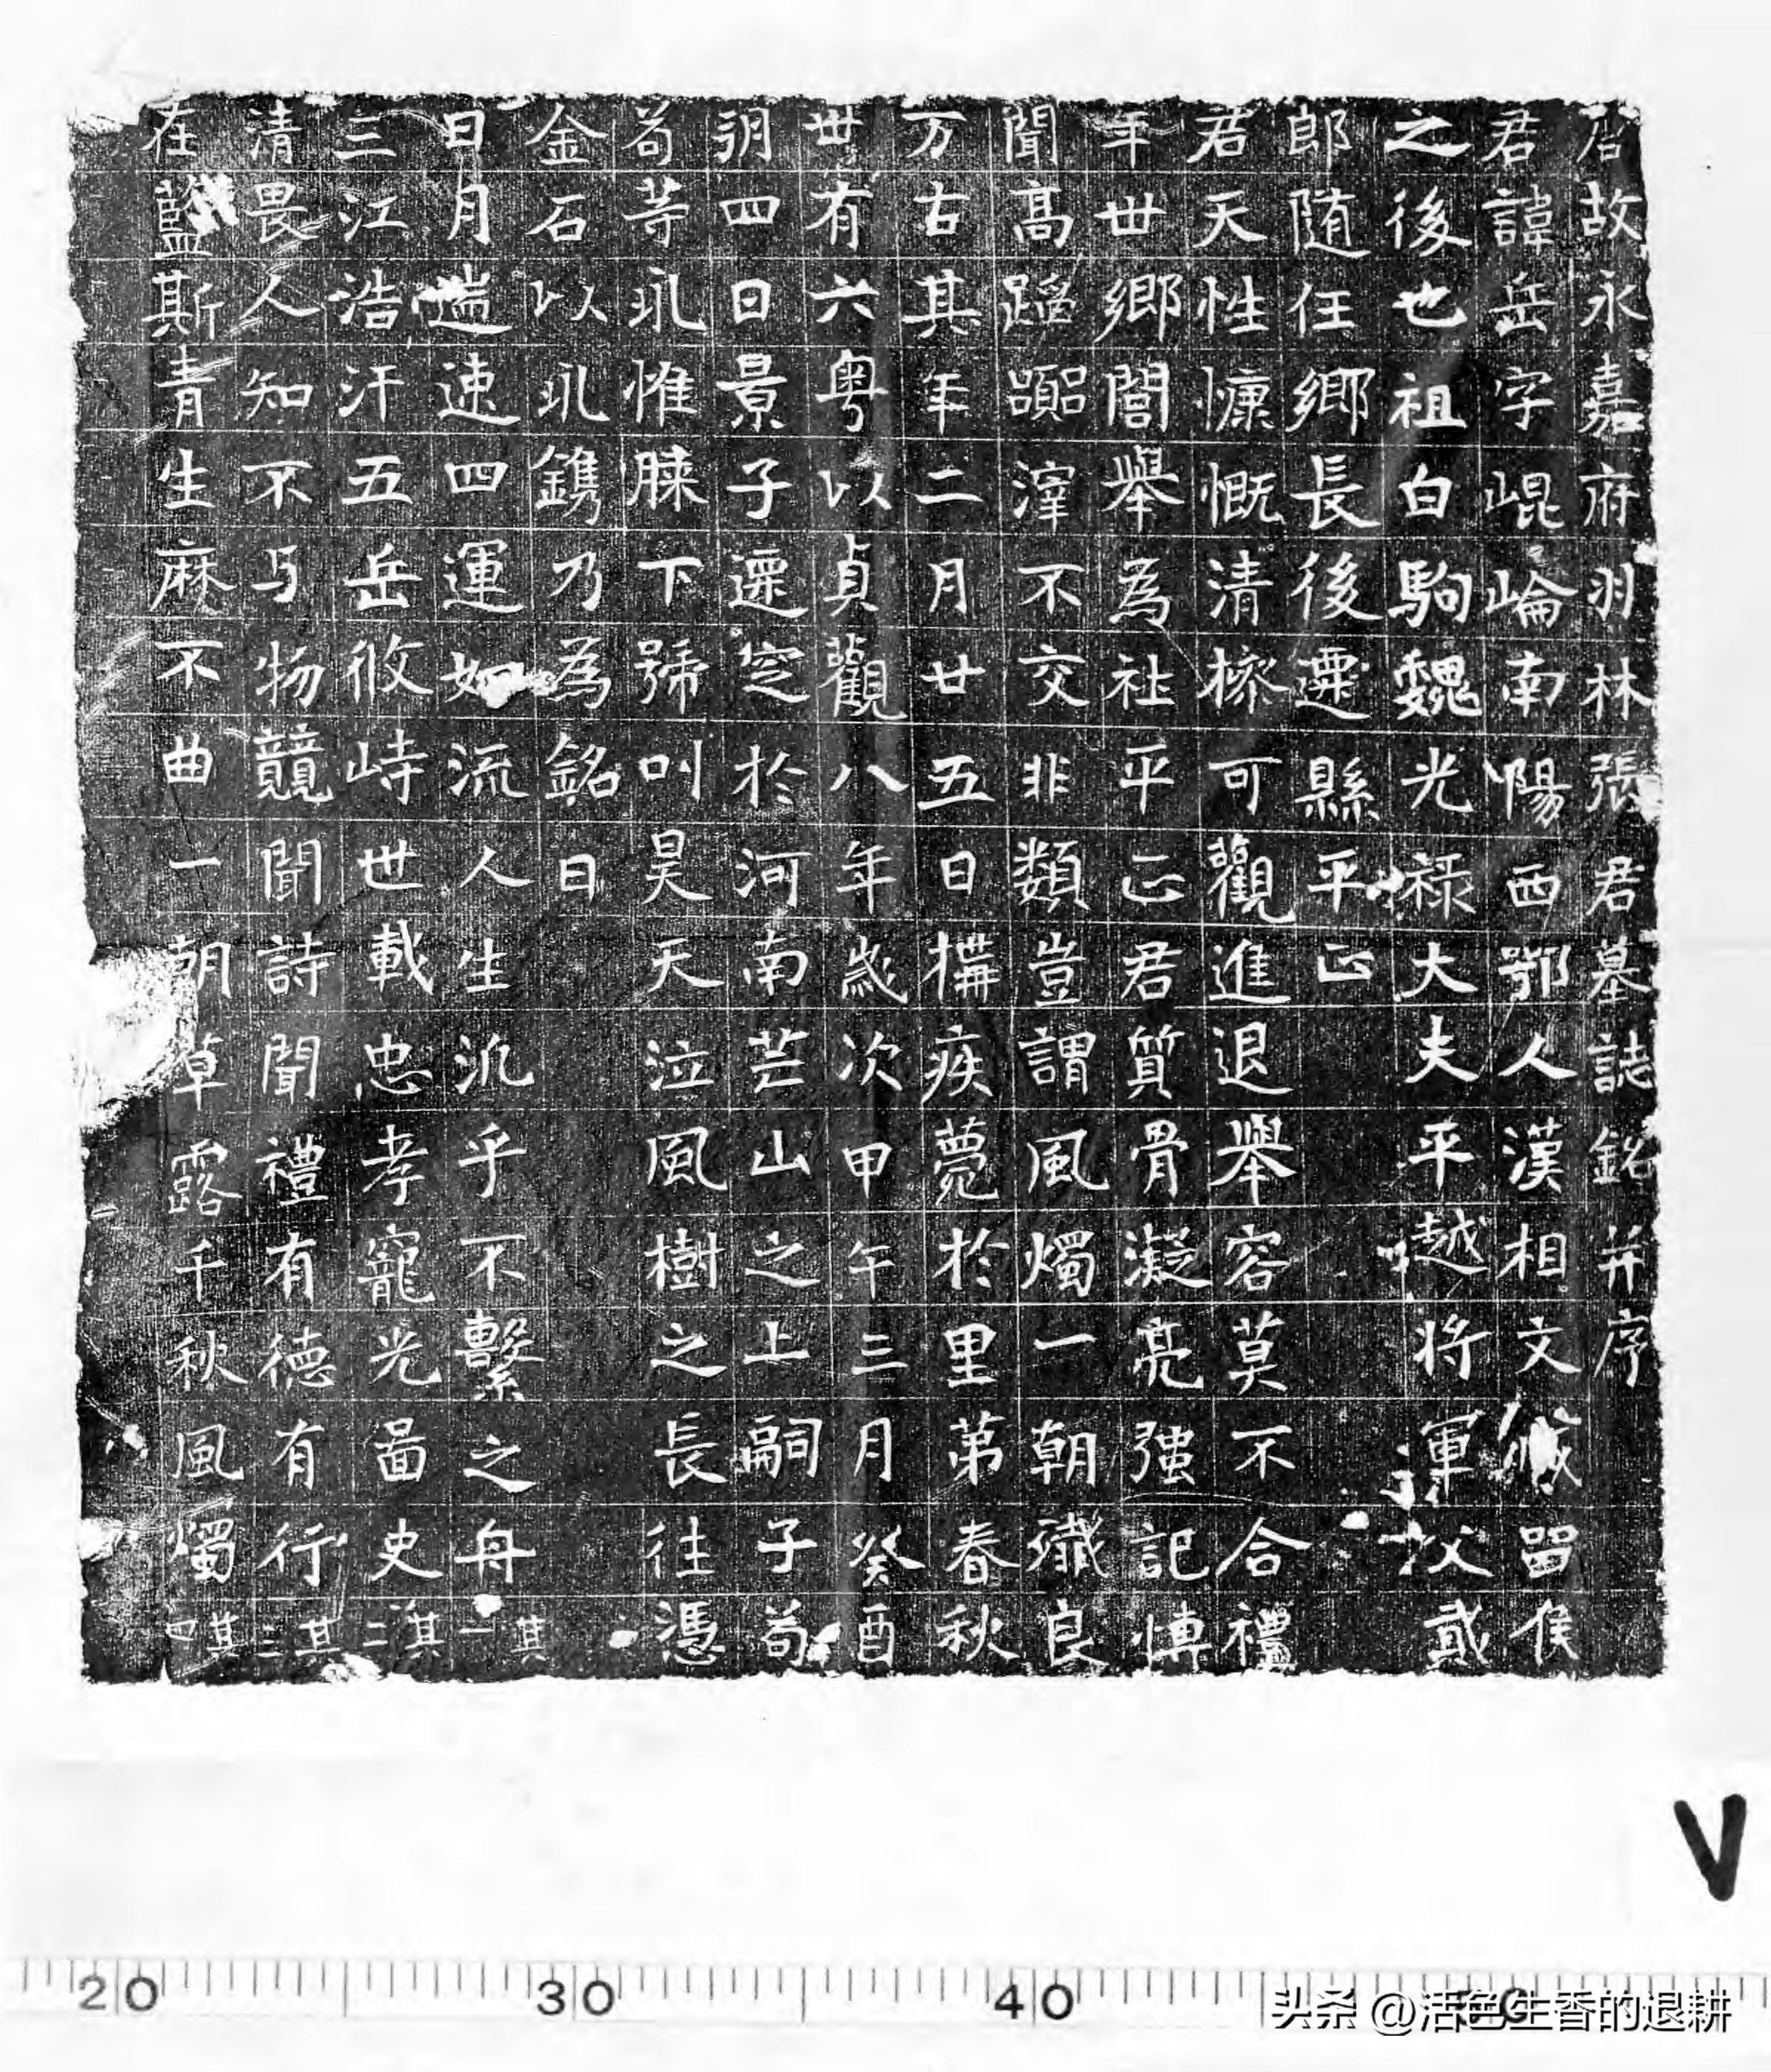 唐故永嘉府羽林張君墓誌銘并序
君諱岳字崐崘南陽西鄂人漢相文成留侯
之後也祖白駒魏光祿大夫平越将軍父彧
郎随任鄉長後遷縣平正
君天性慷慨清㯤可觀進退舉容莫不合禮
年世鄉閭舉為社平正君質骨凝亮強記博
聞高蹈躅滓不交非類豈謂風燭一朝殲良
万古其年二月廿五日構疾薨於里第春秋
丗有六粤以貞觀八年歲次甲午三月癸酉
朔四日景子遷窆於河南芒山之上嗣子苟
苟等痛惟膝下號叫昊天泣風樹之長往憑
金石以永鐫乃為銘曰
日月遄速四運如流人生汎乎不繫之舟其一
三江浩汗五岳攸峙世載忠孝寵光啚史其二
清畏人知不与物競聞詩聞禮有德有行其三
在藍斯青生麻不曲一朝草露千秋風燭其四
20 30 40 50
V
头条 @活色生香的退耕